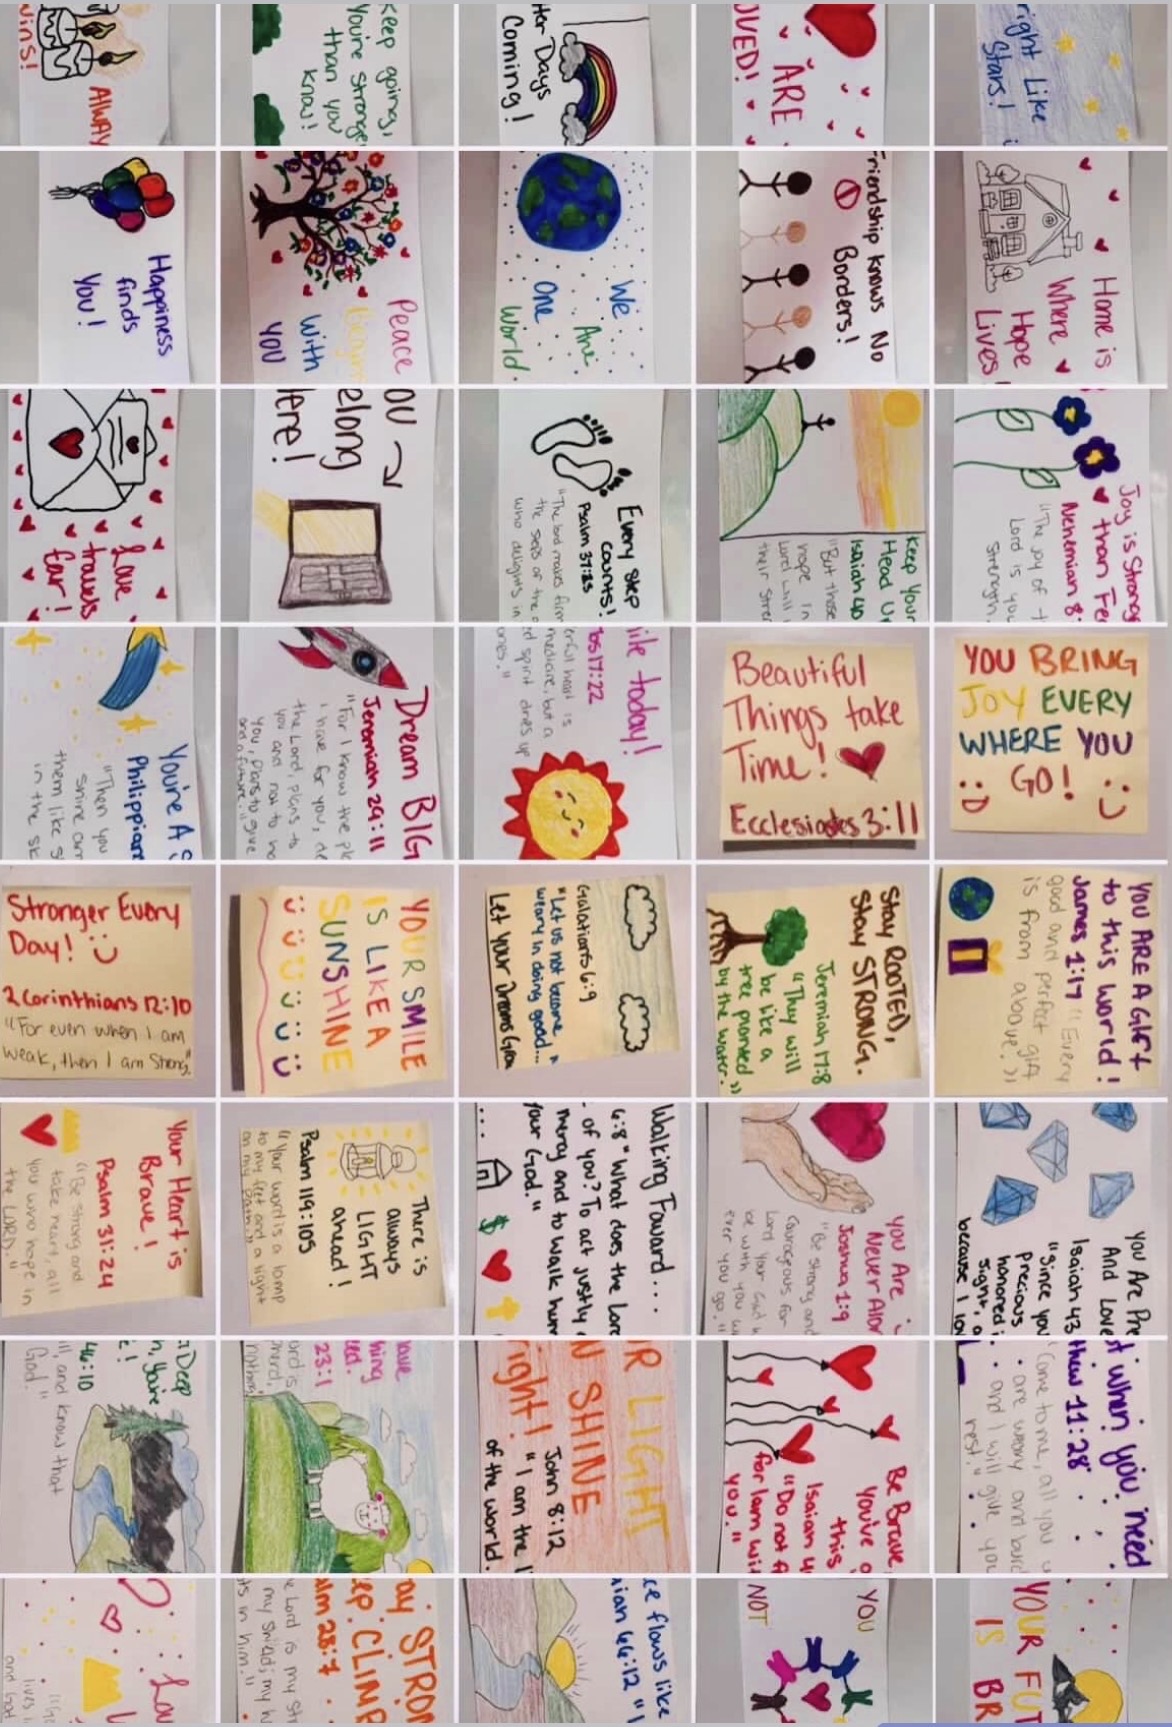 wins!
Alway
Keep going,
You're stronge
than you
know!
ter Days
Coming!
ARE
OVED!
right Like
Stars!
Happiness
finds
You!
Peace
begins
With
YOU
We
Are
One
World.
Friendship knows No
Borders!
Home is
Where
Hope
Lives
Love
travels
far!
OU →
elong
Here!
Every Step
Counts!
Psalm 37:23
"The lord makes firm
the steps of the o
who delights in
Keep Your
Head U
Isaiah 40
"But those
hope in
Lord will
their stren
Joy is Strong
than Fe
Nehemiah 8:
"The joy of t
Lord is you
strength.
You're A S
Philippian
"Then you
shine am
them like s
in the sk
Dream BIG
Jeremiah 29:11
"For I know the pl
I have for you, de
the Lord, plans to
you and not to ha
you, plans to give
and a future."
ile today!
bs 17:22
erful heart is
medicine, but a
d spirit dries up
ones."
Beautiful
Things take
Time!
Ecclesiastes 3:11
YOU BRING
JOY EVERY
WHERE YOU
GO!
:D
Stronger Every
Day! :)
2 Corinthians 12:10
"For even when I am
weak, then I am strong"
YOUR SMILE
IS LIKE A
SUNSHINE
Galatians 6:9
"Let us not become
weary in doing good...
Let Your Dreams Grow
Stay ROOTED,
Stay STRONG.
Jeremiah 17:8
"They will
be like a
tree planted
by the water."
YOU ARE A Gift
to this world!
James 1:17 "Every
good and perfect gift
is from above."
Your Heart is
Brave!
Psalm 31:24
"Be strong and
take heart, all
you who hope in
the LORD."
There is
always
LIGHT
ahead!
Psalm 119:105
"Your word is a lamp
to my feet and a light
on my path."
Walking Foward...
6:8 "What does the Lor
of you? To act justly
mercy and to walk hum
your God."
...
$
You Are
Never Alon
Joshua 1:9
"Be strong and
courageous for
Lord your God w
be with you w
ever you go."
You Are Pre
And Love
Isaiah 43
"Since you
precious
honored i
sight, a
because I lo
Deep
n, You're
e!
46:10
ll, and know that
God."
ave
hing
eed.
23:1
ord is
herd,
nothing
R LIGHT
N SHINE
right!
John 8:12
"I am the l
of the world.
Be Brave,
You've g
this
Isaiah 4
"Do not f
for I am wit
you."
t when you need
thew 11:28
"Come to me, all you w
are weary and burd
and I will give you
rest."
Lov
"Go
lives i
and God
ay STRON
ep CLIMB
alm 28:7
e Lord is my str
my shield; my h
ts in him."
ce flows like
iah 66:12 "I
YOU
NOT
YOUR FUT
IS BR